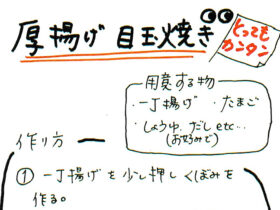 厚揚げ 目玉焼き
とっても
カンタン
用意する物
・一丁揚げ ・たまご
・しょうゆ、だし etc…
(お好みで)
作り方
① 一丁揚げを少し押しくぼみを
作る。